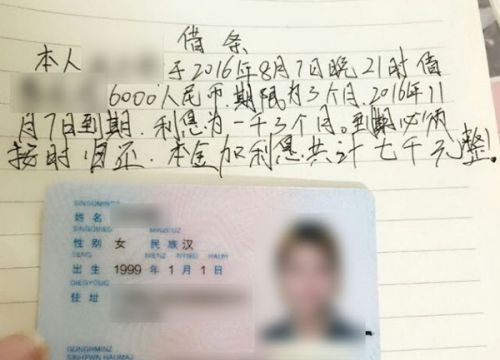 借条
本人 于2016年8月7日晚21时借
6000人民币.期限为3个月.2016年11
月7日到期.利息为一千3个月。到期必须
按时归还.本金加利息共计七千元整!
SINGQMINGZ
姓名
SINGQBIED MINZCUZ
性别 女 民族 汉
SENG NIENZ NYIED HAUH
出生 1999 年 1 月 1 日
DIEGYOUQ
住址
GUNGHMINZ
SINHFWN HAUMAJ